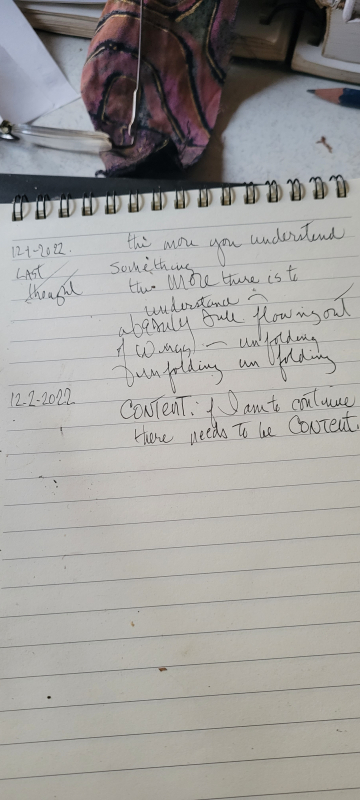 12-1-2022. the more you understand
LAST something
thought the more there is to
understand
a beauty full flowing out
of wings — unfolding
unfolding un folding
12-2-2022 CONTENT: if I am to continue
there needs to be CONTENT.